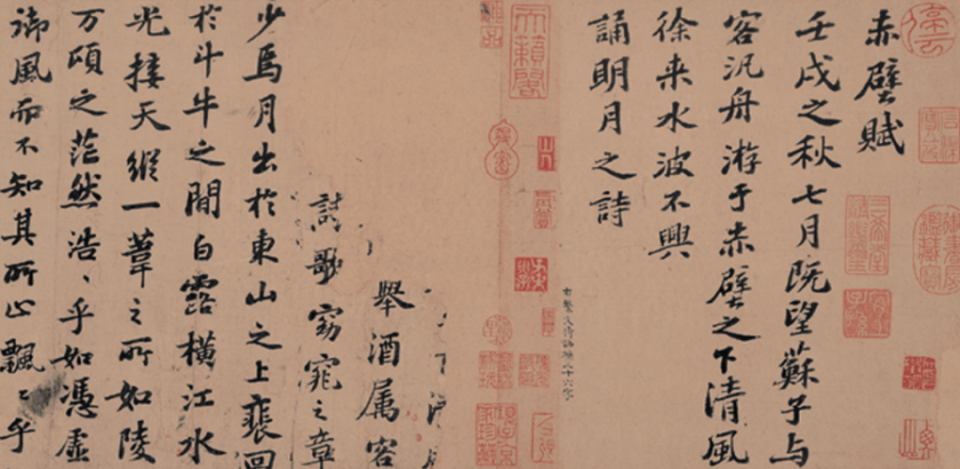 赤壁賦
壬戌之秋七月既望蘇子与
客汎舟游于赤壁之下清風
徐来水波不興
誦明月之詩
天籟閣
舉酒属客
詩歌窈窕之章
少焉月出於東山之上裴回
於斗牛之間白露橫江水
光接天縱一葦之所如陵
万頃之茫然浩〻乎如馮虛
御風而不知其所止飄〻乎